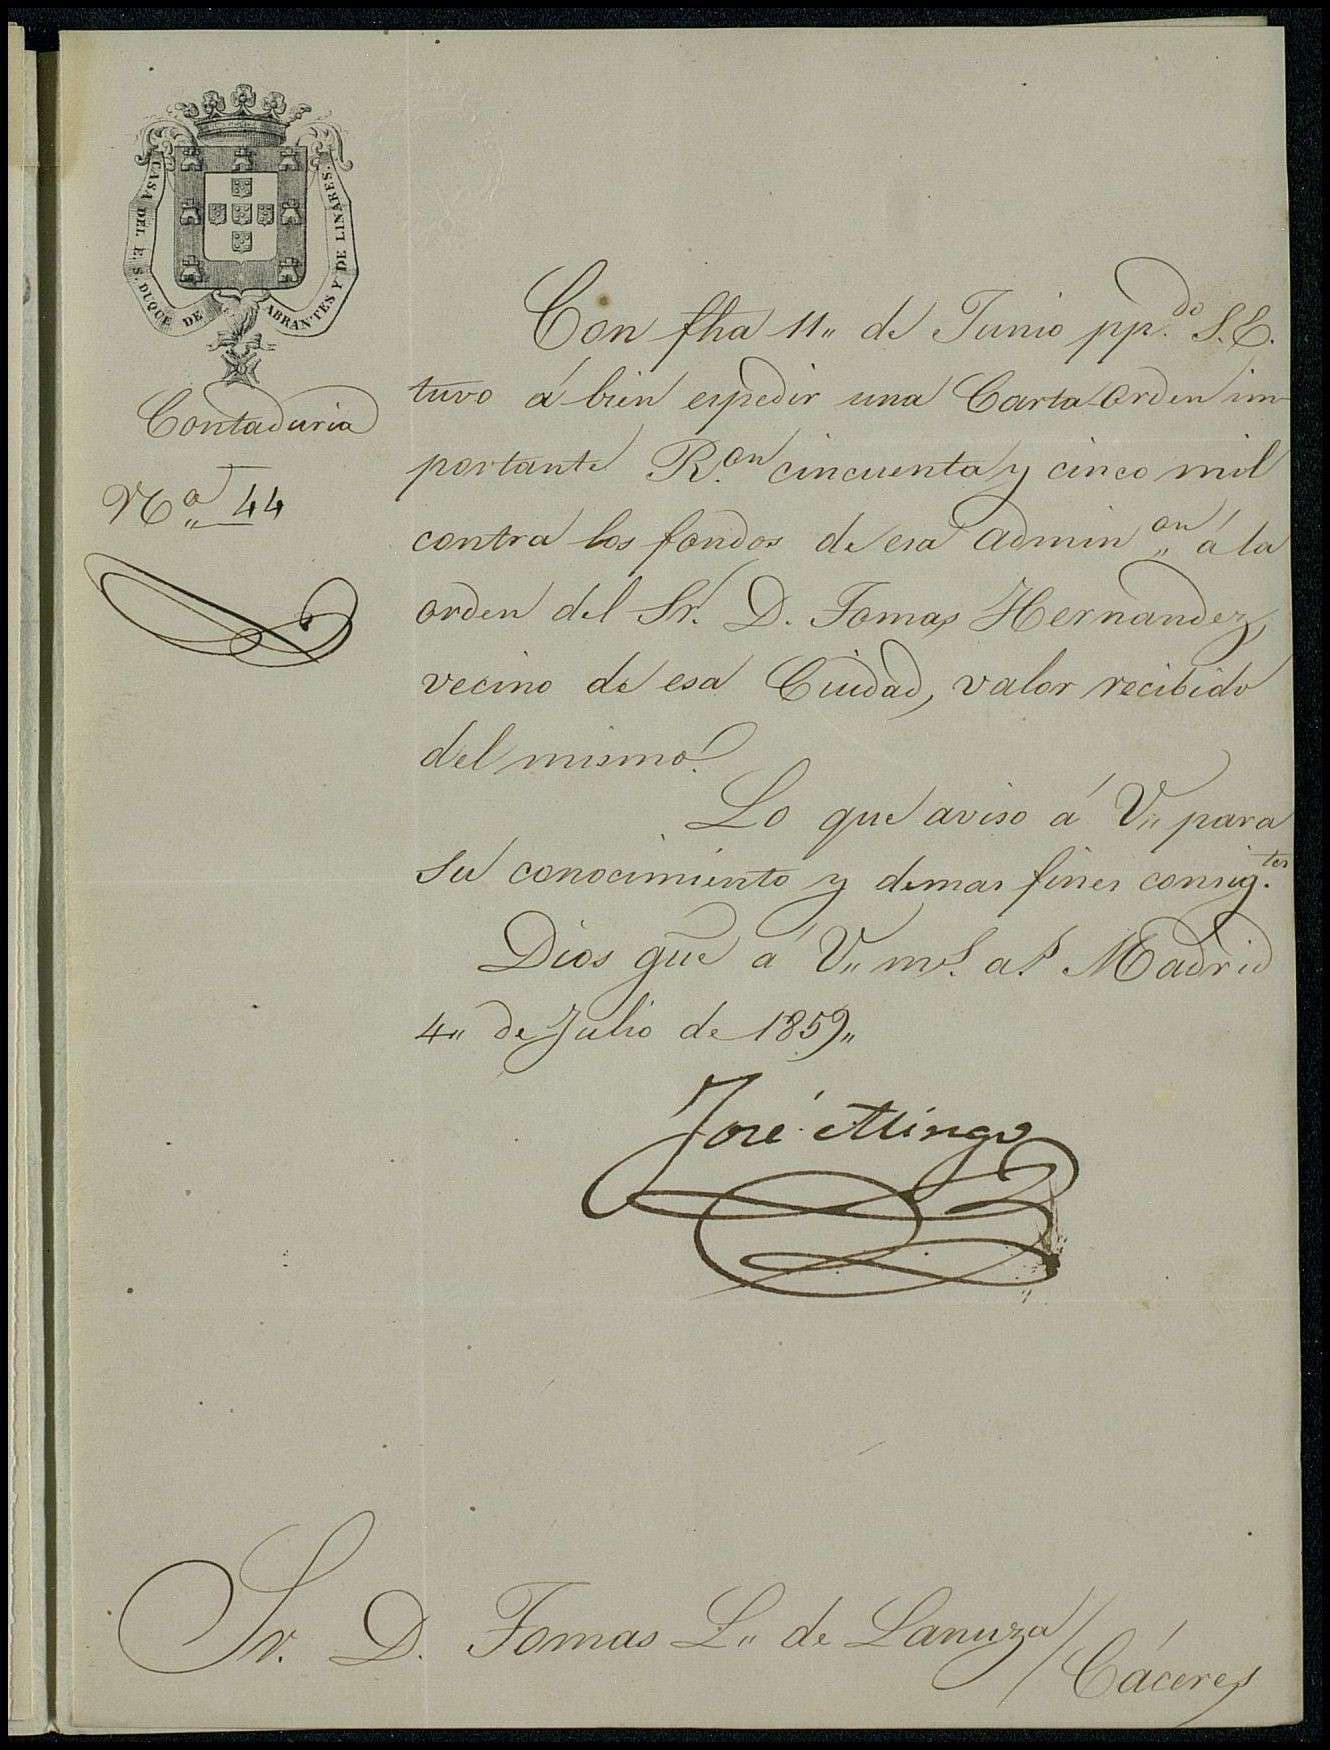 CASA DEL E. S. DUQUE DE ABRANTES Y DE LINARES.
Contaduria
No. 44
Con fha 11,, de Junio pp.do S.E.
tuvo á bien espedir una Carta Orden im-
portante R.on cincuenta y cinco mil
contra los fondos de esa admin.on á la
orden del Sr. D. Tomas Hernandez,
vecino de esa Ciudad, valor recibido
del mismo.
Lo que aviso á V,, para
su conocimiento y demas fines consig.tes
Dios gue á V,, ms. as. Madrid
4,, de Julio de 1859,,
José Mingo
Sr. D. Tomas L,, de Lanuza / Cáceres